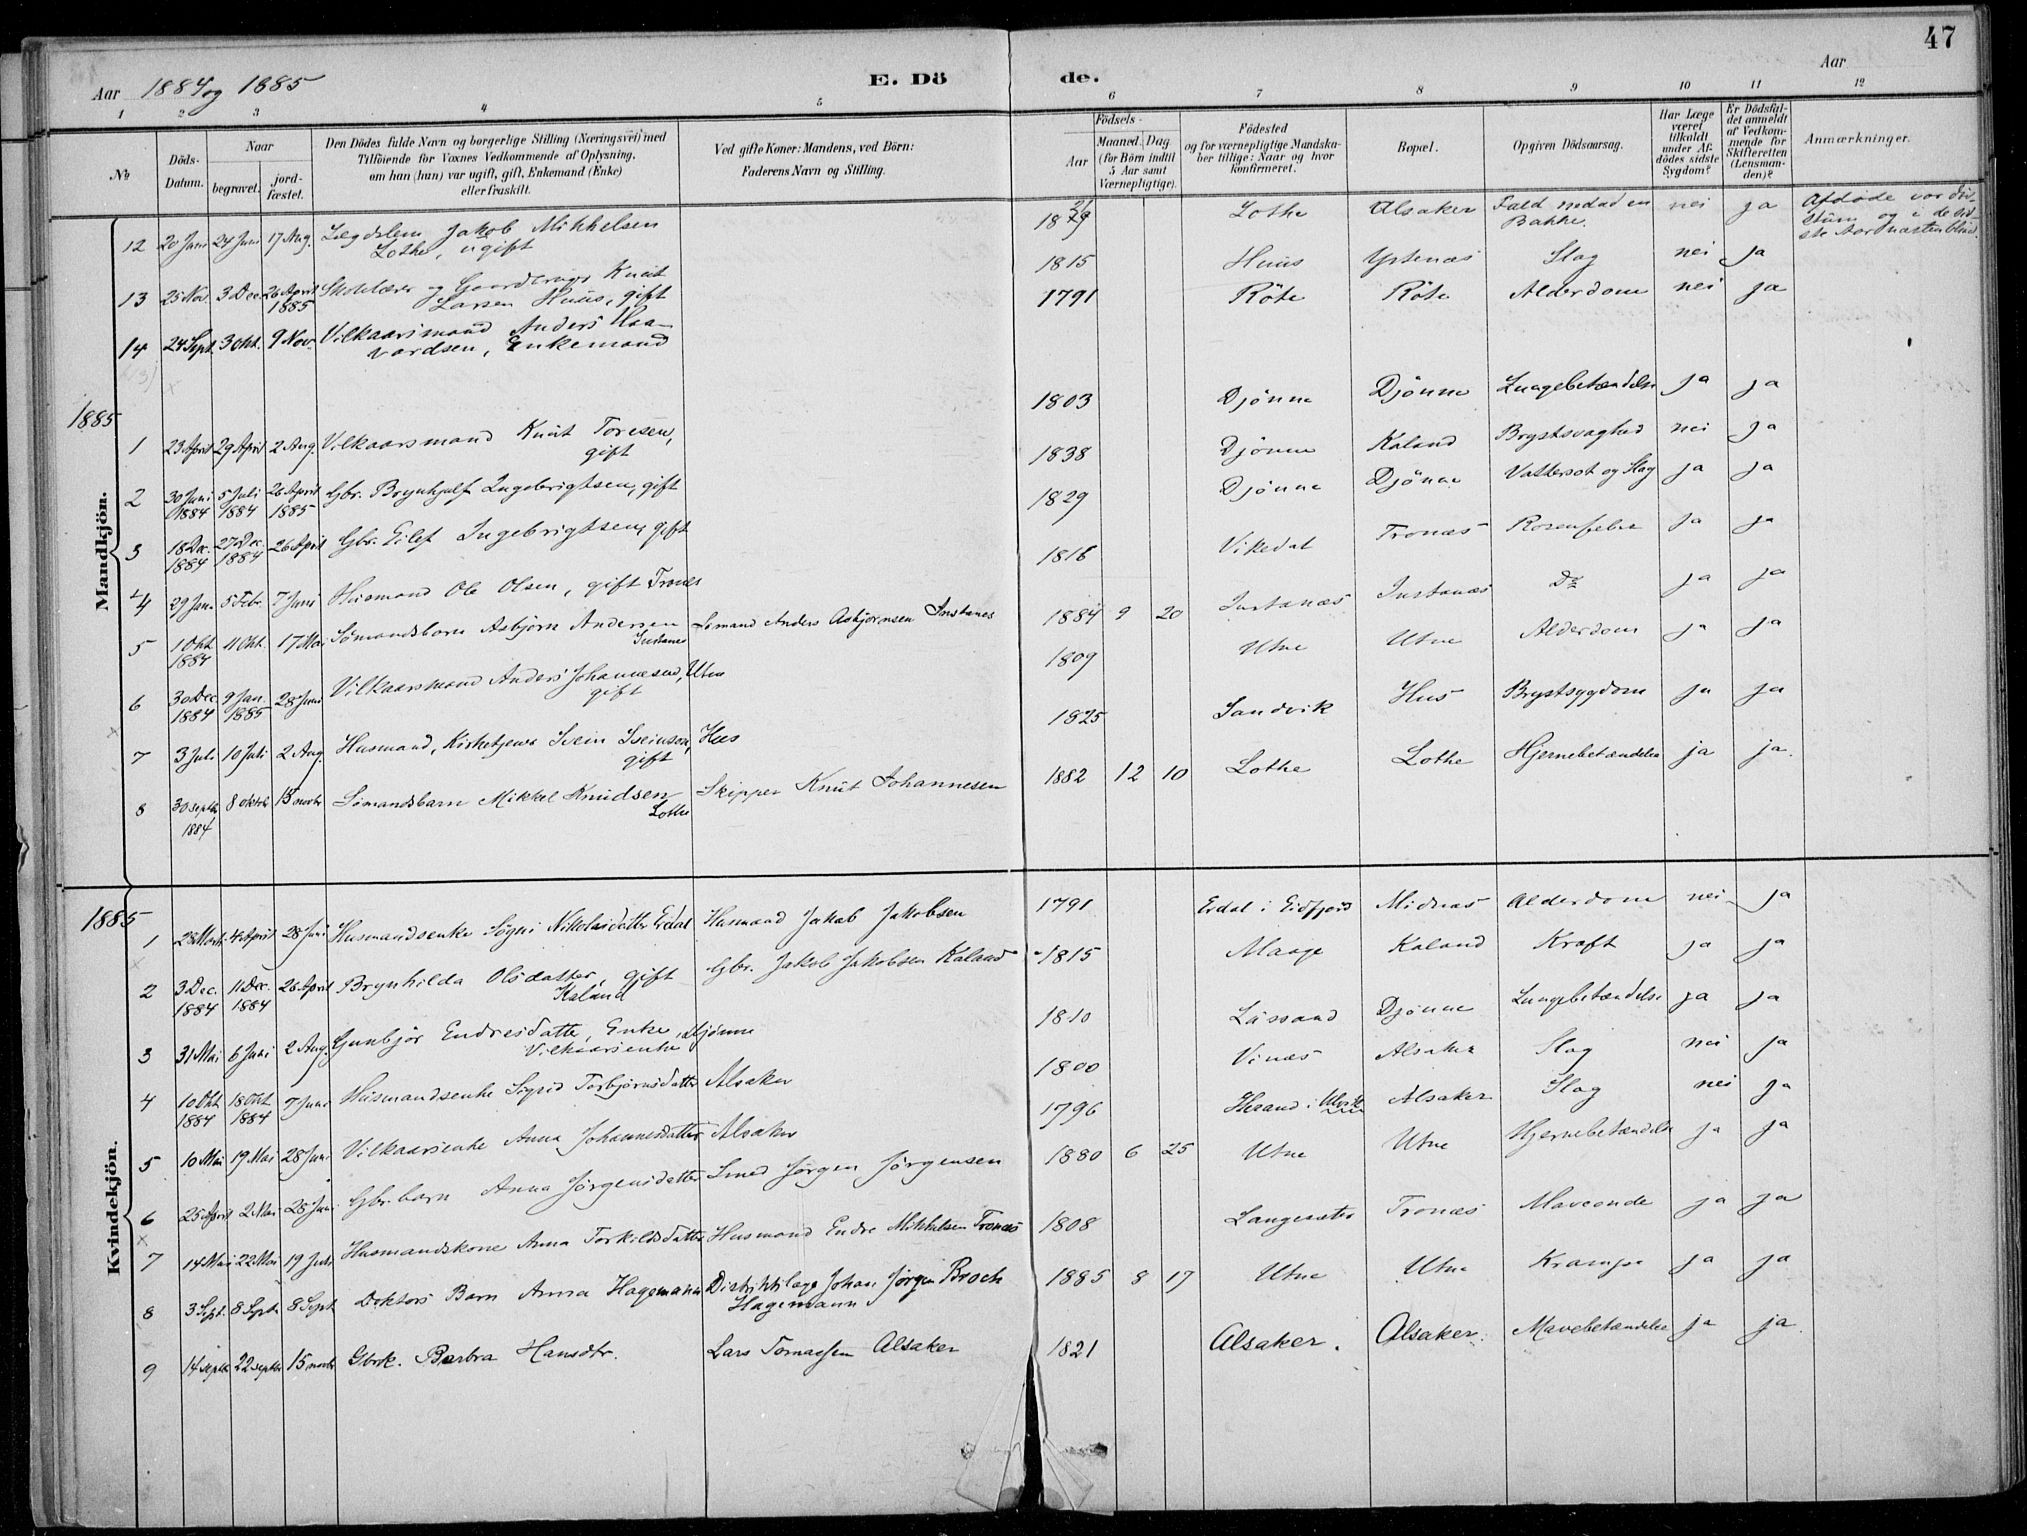 47
Aar 1884 og 1885
E. Dö
de.
Aar
1 2 3 4 5 6 7 8 9 10 11 12
№
Döds-Datum.
Naar
begravet.
jord-fæstet.
Den Dödes fulde Navn og borgerlige Stilling (Næringsvei) med
Tilföiende for Voxnes Vedkommende af Oplysning,
om han (hun) var ugift, gift, Enkemand (Enke)
eller fraskilt.
Ved gifte Koner: Mandens, ved Börn:
Faderens Navn og Stilling.
Födsels-
Aar
Maaned. Dag
(for Börn indtil
5 Aar samt
Værnepligtige).
Födested
og for værnepligtige Mandska-
ber tillige: Naar og hvor
konfirmeret.
Bopæl.
Opgiven Dödsaarsag.
Har Læge
været
tilkaldt
under Af-
dödes sidste
Sygdom?
Er Dödsfal-
det anmeldt
af Vedkom-
mende for
Skifteretten
(Lensman-
den)?
Anmærkninger.
Mandkjön.
12 20 Juni 24 Juni 17 Aug. Lægdslem Jakob Mikkelsen Lothe, ugift Lothe Alsaker Fald nedad en Bakke. nei ja Afdøde var døv stum og i de sid-ste Aar næsten blind.
13 25 Nov. 3 Dec. 26 April 1885 Skolelærer og Gaardbruger Knut Larsen Huus, gift 1815 Huus Ystenæs Slag nei ja
14 24 Sept. 3 Okt. 9 Nov. Vilkaarsmand Anders Haa-vardsen, Enkemand 1791 Röte Röte Alderdom nei ja
1885
1 23 April 29 April 2 Aug. Vilkaarsmand Knut Toresen, gift 1803 Djönne Djönne Lungebetændelse ja ja
2 30 Juni 1884 5 Juli 1884 26 April 1885 Gbr. Brynhjulf Ingebrigtsen, gift 1838 Djönne Kaland Brystsvaghed nei ja
3 18 Dec. 1884 27 Dec. 1884 26 April Gbr. Eilef Ingebrigtsen, gift 1829 Djönne Djönne Vattersot og Slag ja ja
4 29 Jan. 5 Febr. 7 Juni Husmand Ole Olsen, gift Tronæs 1816 Vikedal Tronæs Rosenfeber ja ja
5 1 Okt. 1884 11 Okt. 17 Mai Sömandsbarn Asbjörn Andersen Instanes Sömand Anders Asbjörnsen Instanes 1884 9 20 Instanæs Instanæs Do ja ja
6 30 Dec. 1884 9 Jan. 1885 28 Juni Vilkaarsmand Anders Johannesen, Utne gift 1809 Utne Utne Alderdom ja ja
7 3 Juli 10 Juli 2 Aug. Husmand, Kirketjener Svein Sveinson, Hus gift 1825 Sandvik Hus Brystsygdom ja ja
8 30 septbr 1884 8 oktbr 15 novbr Sömandsbarn Mikkel Knudsen Lothe Skipper Knut Johannesen 1882 12 10 Lothe Lothe Hjernebetændelse ja ja.
Kvindekjön.
1885
1 4 April 28 Juni Husmandsenke Sögni Nikolaisdatter Erdal Husmand Jakob Jakobsen 1791 Erdal i Eidfjord Midnæs Alderdom nei ja
2 3 Dec. 1884 11 Dec. 1884 26 April Brynhilda Olsdatter, gift Kaland Gbr. Jakob Jakobsen Kaland 1815 Maage Kaland Kræft ja ja
3 31 Mai 6 Juni 2 Aug. Gunbjör Endresdatter, Enke, Djönne Vilkaarsenke 1810 Djönne Lungebetændelse ja ja
4 10 Okt 1884 18 Okt 1884 7 Juni Husmandsenke Sigrid Torbjörnsdatter Alsaker 1800 Vinæs Alsaker Slag nei ja
5 10 Mai 19 Mai 28 Juni Vilkaarsenke Anna Johannesdatter Alsaker 1796 Herand i Ulvik Alsaker Slag nei ja
6 25 April 2 Mai 28 Juni Gbr. barn Anna Jørgensdatter Smed Jørgen Jørgensen 1880 6 25 Utne Utne Hjernebetændelse ja ja
7 14 Mai 22 Mai 19 Juli Husmandskone Anna Torkildsdatter Husmand Endre Mikkelsen Tronæs 1808 Langesæter Tronæs Maveonde ja ja
8 3 Sept. 8 Sept. 8 Sept Doktors Barn Anna Hagemann Distriktslæge Johan Jørgen Broch Hagemann 1885 8 17 Utne Utne Krampe ja ja
9 14 septbr 22 septbr 15 novbr Gbrk. Barbra Hansdtr. Lars Tomassen Alsaker 1821 Alsaker. Alsaker. Mavebetændelse ja ja.